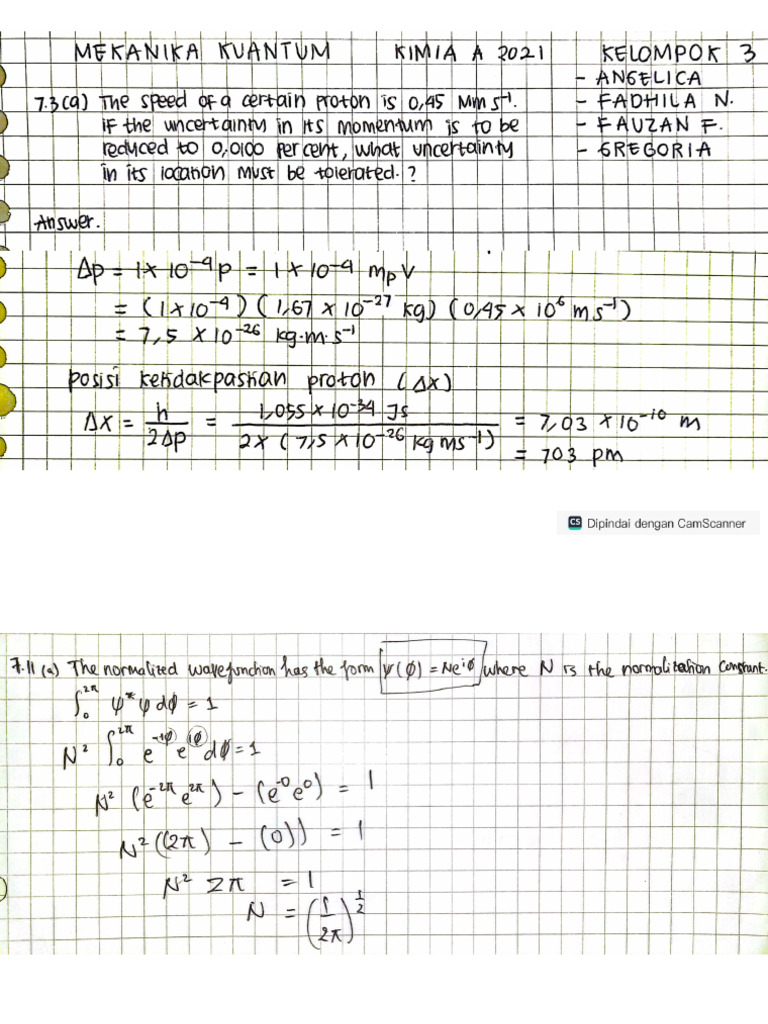 MEKANIKA KUANTUM KIMIA A 2021 KELOMPOK 3
- ANGELICA
- FADHILA N.
- FAUZAN F.
- GREGORIA
7.3(a) The speed of a certain proton is 0,45 Mm s⁻¹.
if the uncertainty in its momentum is to be
reduced to 0,0100 per cent, what uncertainty
in its location must be tolerated.?
Answer.
Δp = 1 x 10⁻⁴ p = 1 x 10⁻⁴ mₚ V
= (1 x 10⁻⁴) (1,67 x 10⁻²⁷ kg) (0,45 x 10⁶ m s⁻¹)
= 7,5 x 10⁻²⁶ kg.m.s⁻¹
posisi ketidakpastian proton (Δx)
Δx = ħ / 2Δp = 1,055 x 10⁻³⁴ Js / 2x (7,5 x 10⁻²⁶ kg ms⁻¹) = 7,03 x 10⁻¹⁰ m
= 703 pm
CS Dipindai dengan CamScanner
7.11 (a) The normalized wavefunction has the form ψ(φ) = Ne^iφ where N is the normalization constant.
∫₀^2π ψ* ψ dφ = 1
N² ∫₀^2π e^-iφ e^iφ dφ = 1
N² (e^-2π e^2π) - (e^-0 e^0) = 1
N² ((2π) - (0)) = 1
N² 2π = 1
N = (1/2π)^1/2